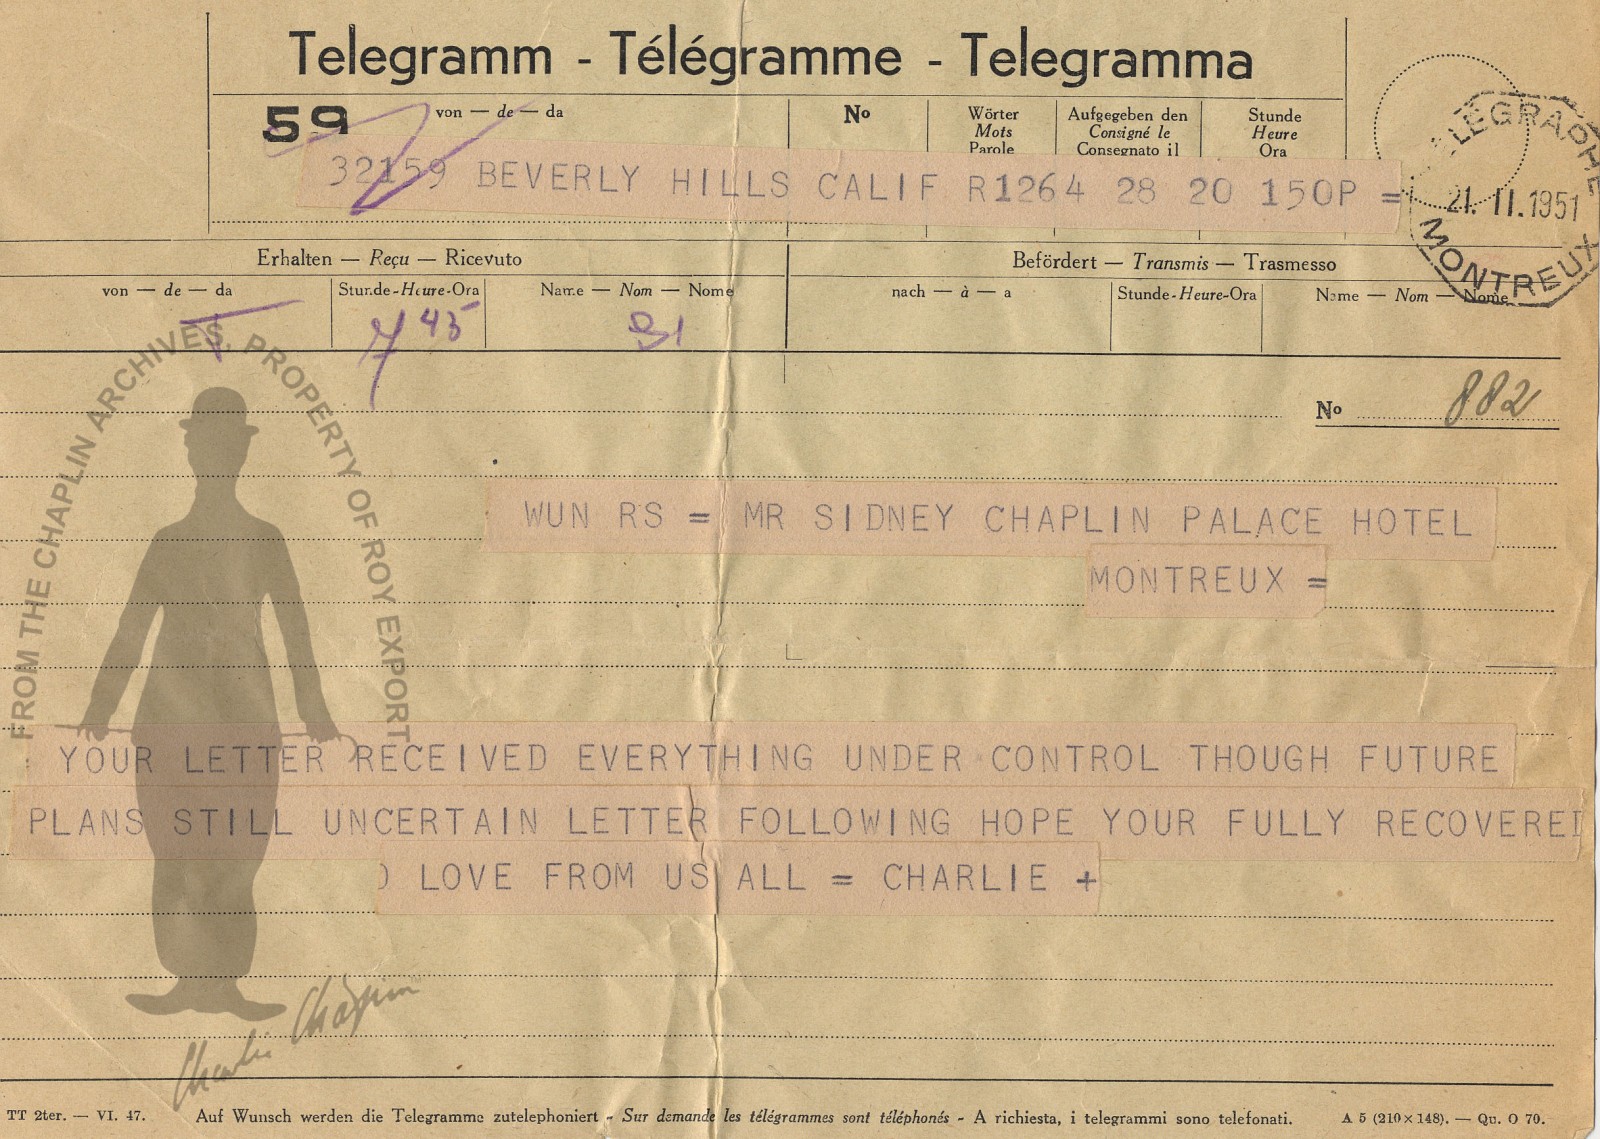 Telegramm - Télégramme - Telegramma
59 von — de — da
No
Wörter
Mots
Parole
Aufgegeben den
Consigné le
Consegnato il
Stunde
Heure
Ora
32159 BEVERLY HILLS CALIF R1264 28 20 150P =
TELEGRAPHE
21. II. 1951
MONTREUX
Erhalten — Reçu — Ricevuto
Befördert — Transmis — Trasmesso
von — de — da
Stunde-Heure-Ora
Name — Nom — Nome
nach — à — a
Stunde-Heure-Ora
Name — Nom — Nome
7 45
No 882
WUN RS = MR SIDNEY CHAPLIN PALACE HOTEL
MONTREUX =
YOUR LETTER RECEIVED EVERYTHING UNDER CONTROL THOUGH FUTURE
PLANS STILL UNCERTAIN LETTER FOLLOWING HOPE YOUR FULLY RECOVERED
D LOVE FROM US ALL = CHARLIE +
FROM THE CHAPLIN ARCHIVES, PROPERTY OF ROY EXPORT
Charlie Chaplin
TT 2ter. — VI. 47.
Auf Wunsch werden die Telegramme zutelephoniert - Sur demande les télégrammes sont téléphonés - A richiesta, i telegrammi sono telefonati.
A 5 (210×148). — Qu. O 70.